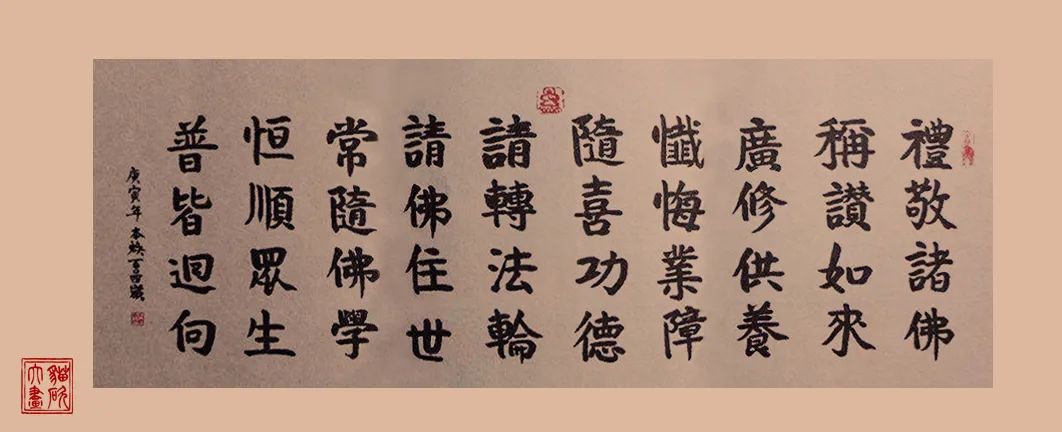 禮敬諸佛
稱讚如來
廣修供養
懺悔業障
隨喜功德
請轉法輪
請佛住世
常隨佛學
恒順眾生
普皆迴向
庚寅年本煥百四歲